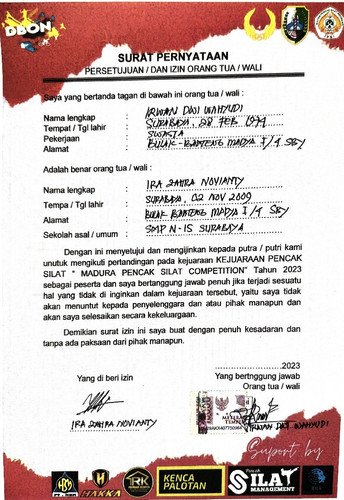 DBON
SURAT PERNYATAAN
PERSETUJUAN / DAN IZIN ORANG TUA / WALI
Saya yang bertanda tagan di bawah ini orang tua / wali :
Nama lengkap : IRWAN DWI WAHYUDI
Tempat / Tgl lahir : SURABAYA, 28 FEB 1979
Pekerjaan : SWASTA
Alamat : BULAK-BANTENG MADYA I/4 SBY
Adalah benar orang tua / wali :
Nama lengkap : IRA ZAHRA NOVIANTY
Tempa / Tgl lahir : SURABAYA, 02 NOV 2009
Alamat : BULAK BANTENG MADYA I/4 SBY
Sekolah asal / umum : SMP N-15 SURABAYA
Dengan ini menyetujui dan mengijinkan kepada putra / putri kami
unutuk mengikuti pertandingan pada kejuaraan KEJUARAAN PENCAK
SILAT " MADURA PENCAK SILAT COMPETITION" Tahun 2023
sebagai peserta dan saya bertanggung jawab penuh jika terjadi sesuatu
hal yang tidak di inginkan dalam kejuaraan tersebut, yaitu saya tidak
akan menuntut kepada penyelenggara dan atau pihak manapun dan
akan saya selesaikan secara kekeluargaan.
Demikian surat izin ini saya buat dengan penuh kesadaran dan
tanpa ada paksaan dari pihak manapun.
........................2023
Yang di beri izin
Yang bertnggung jawab
Orang tua / wali
METERAI
TEMPEL
IRA ZAHRA NOVIANTY
IRWAN DWI WAHYUDI
Suport by
HAKKA
RK
KENCA
PALOTAN
SILAT
MANAGEMENT